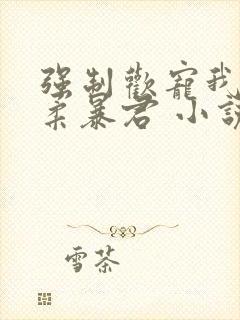 强制歡寵我
柔暴君 小說
雪茶